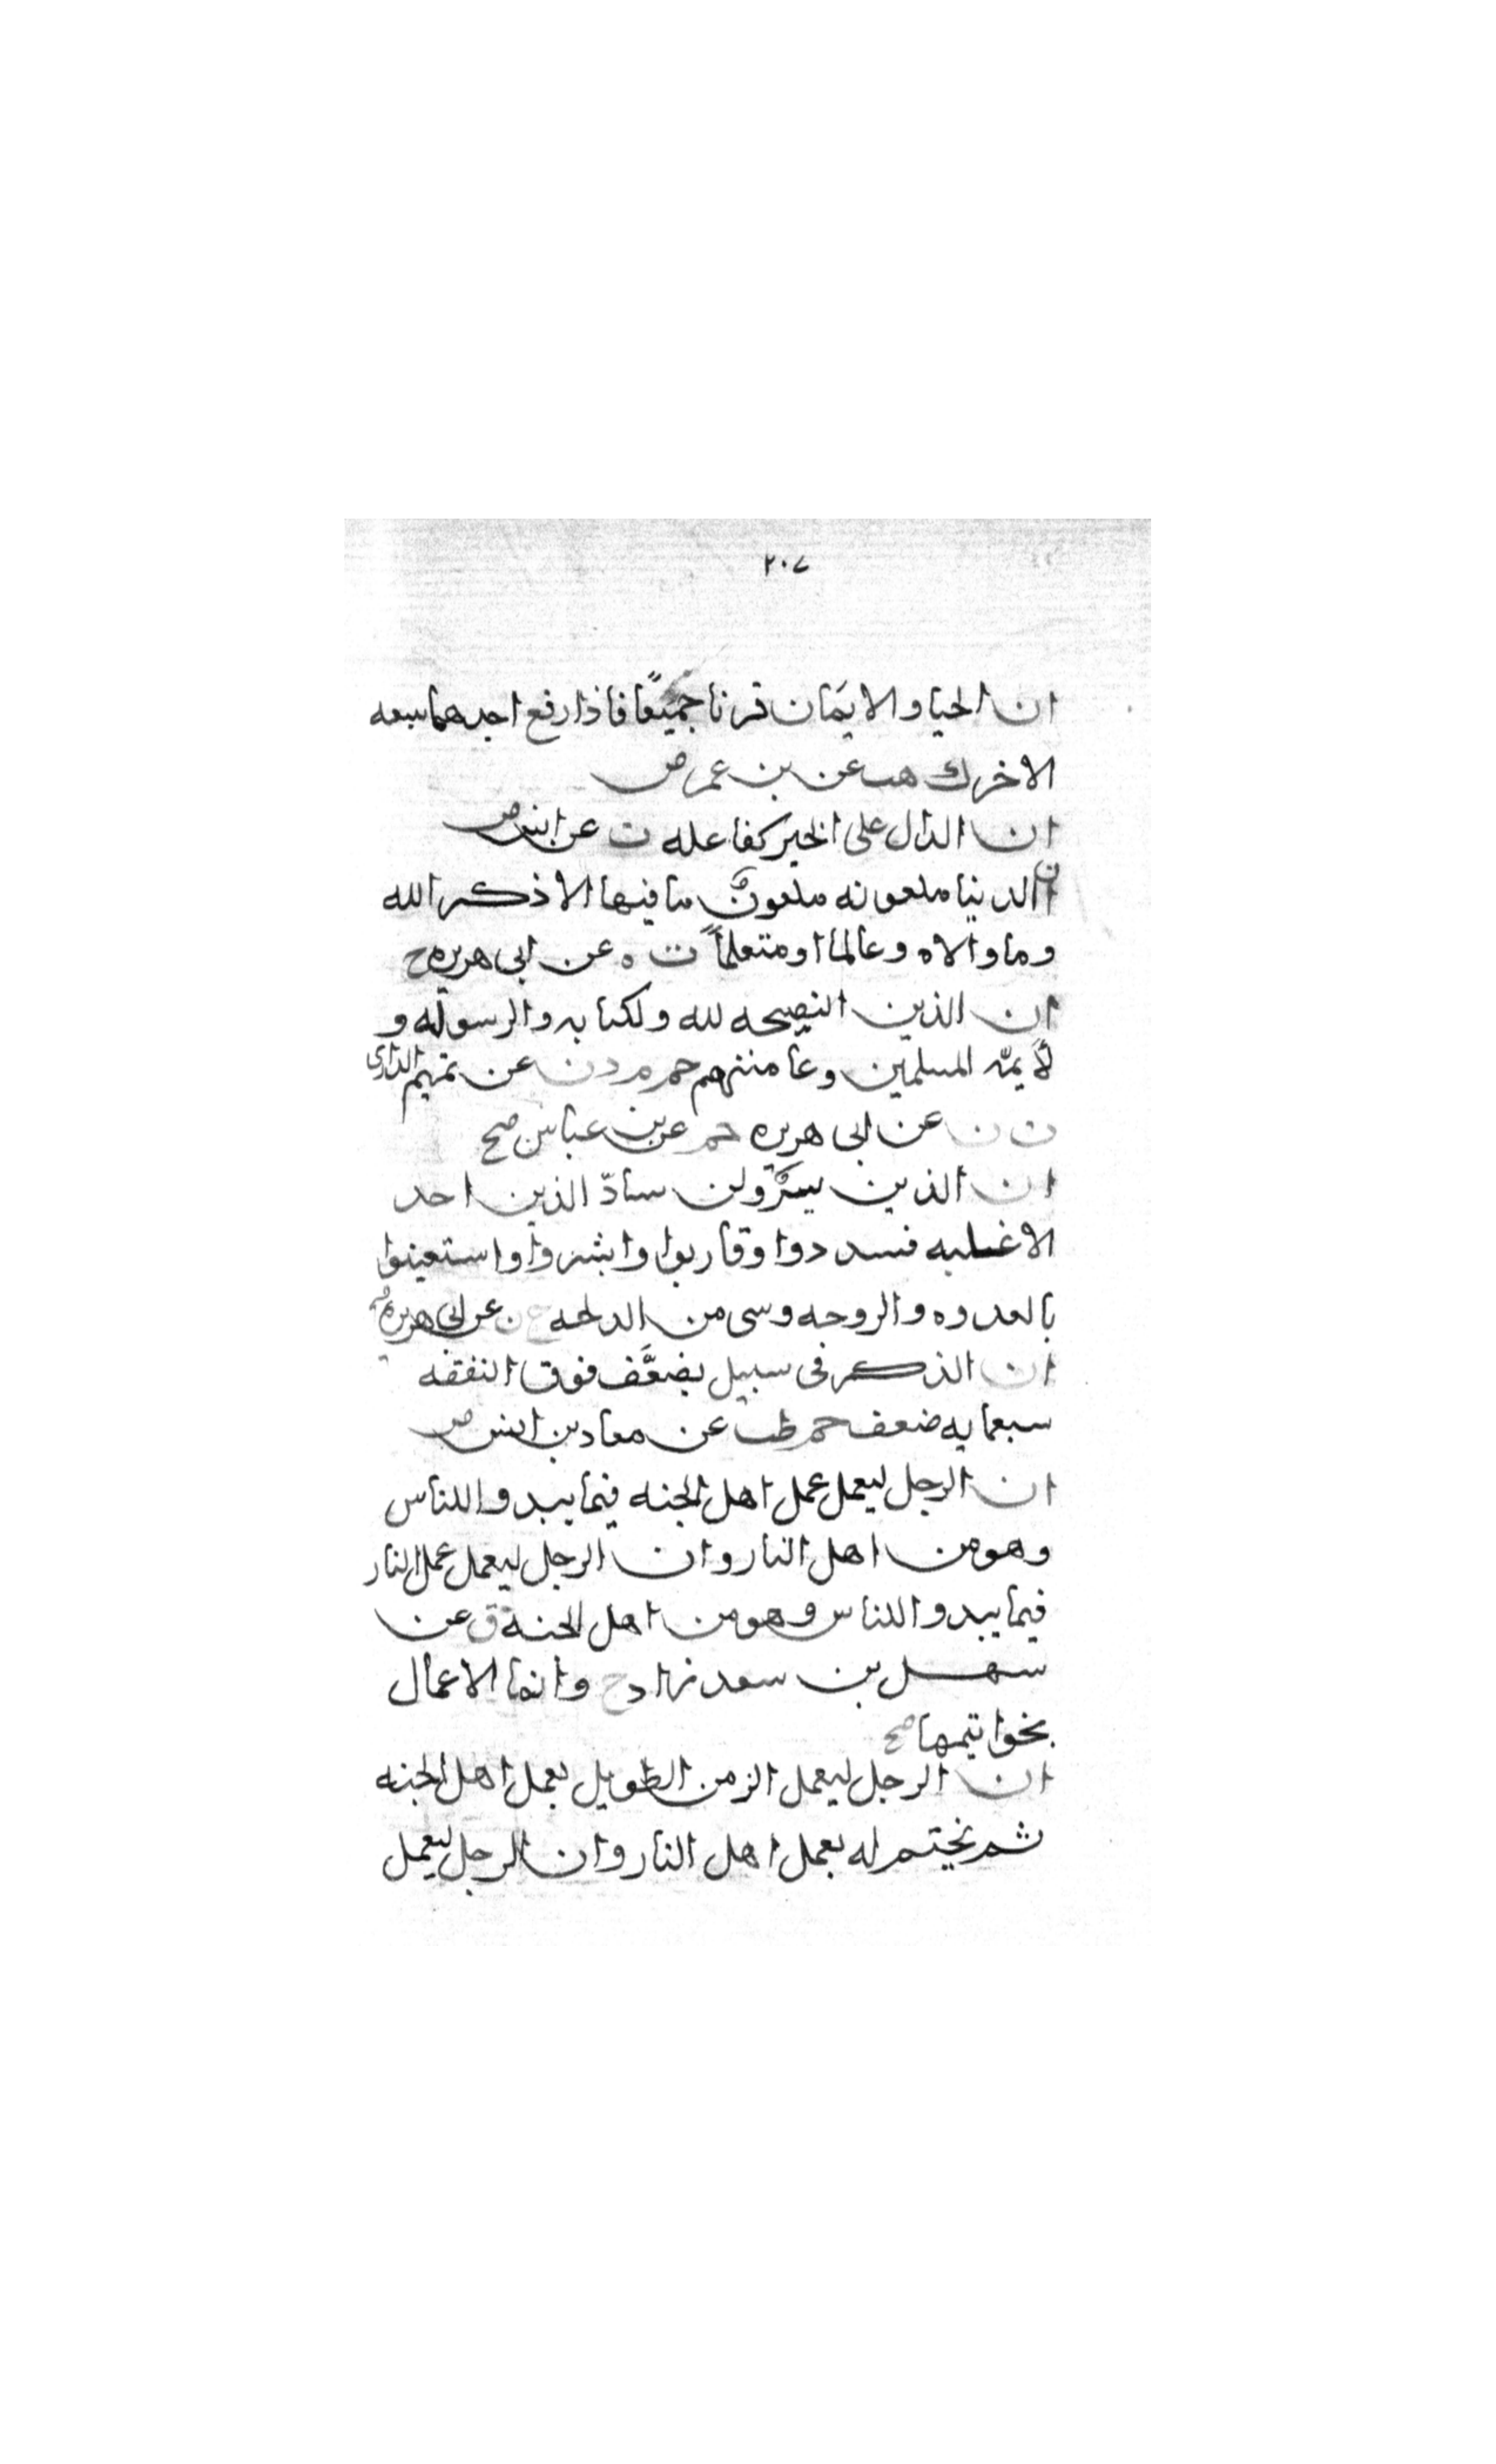 ٢٠٧
ان الحيا والايمان قرنا جميعًا فاذا رفع احدهما سعه
الاخر ك هب عن بن عمر ض
ان الدال على الخير كفاعله ت عن انس ض
ان الدنيا ملعونه ملعونٌ ما فيها الا ذكر الله
وما والاه وعالما او متعلماً ت ه عن ابى هريره ح
ان الذين النصيحه لله ولكتابه والرسوله و
لأيمّه المسلمين وعامتهم حم م د ن عن تميم الدارى
ت ن عن ابى هريره حم عن بن عباس صح
ان الذين يسرٌ ولن سادّ الذين احد
الا غلبه فسددوا وقاربوا وابشروا واستعينوا
بالعدوه والروحه وسى من الدلحه خ ن عن ابى هريره صح
ان الذكر فى سبيل يضعَّف فوق النفقه
سبعمايه ضعف حم طب عن معاد بن انس ض
ان الرجل ليعمل عمل اهل الجنه فيما يبدوا للناس
وهو من اهل النار وان الرجل ليعمل عمل النار
فيما يبدوا للناس وهو من اهل الجنه ق عن
سهل بن سعد زاد خ وانما الاعمال
بخواتيمها صح
ان الرجل ليعمل الزمن الطويل بعمل اهل الجنه
ثم يختم له بعمل اهل النار وان الرجل ليعمل